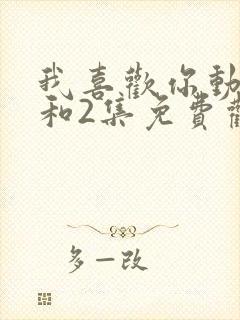 我喜歡你動
和2集免費觀
多一改